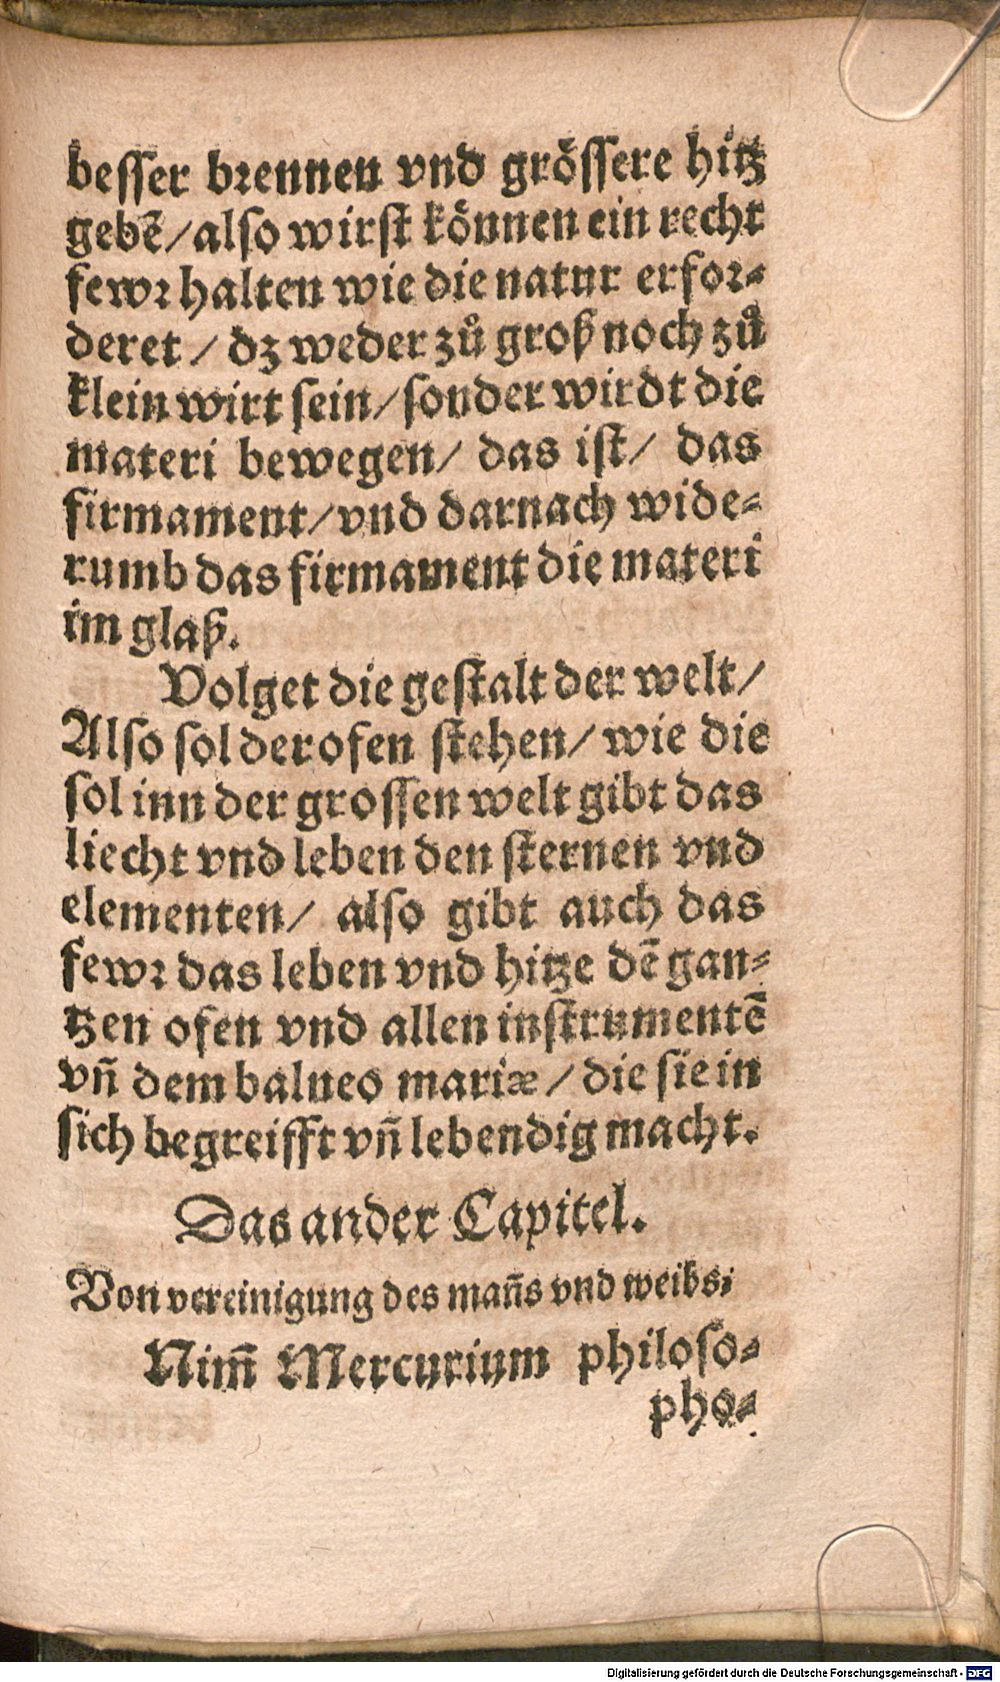 besser brennen vnd grössere hitz
gebē/also wirst können ein recht
fewr halten wie die natur erfor-
deret / dz weder zů groß noch zů
klein wirt sein/sonder wirdt die
materi bewegen/ das ist/ das
firmament/vnd darnach wide-
rumb das firmament die materi
im glaß.
Volget die gestalt der welt/
Also sol der ofen stehen/ wie die
sol inn der grossen welt gibt das
liecht vnd leben den sternen vnd
elementen/ also gibt auch das
fewr das leben vnd hitze dē gan-
tzen ofen vnd allen instrumentē
vñ dem balneo mariæ / die sie in
sich begreifft vñ lebendig macht.
Das ander Capitel.
Von vereinigung des mañs vnd weibs:
Nim̄ Mercurium philoso-
pho-
Digitalisierung gefördert durch die Deutsche Forschungsgemeinschaft - DFG